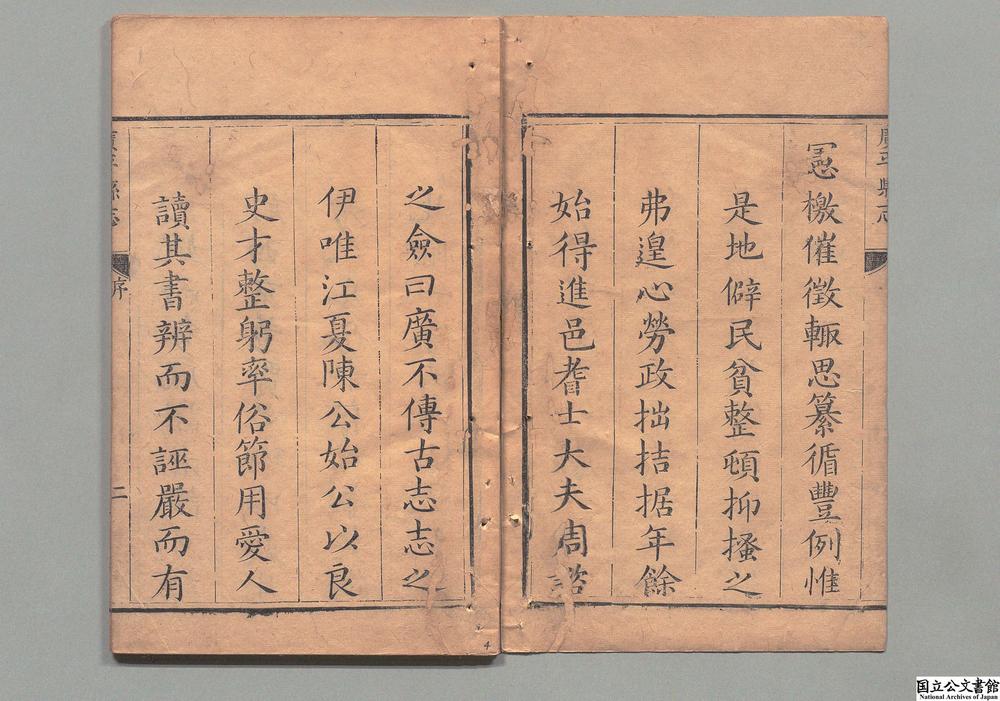 憲檄催徵輙思纂循豐例惟
是地僻民貧整頓抑搔之
弗遑心勞政拙拮据年餘
始得進邑耆士大夫周諮
之僉曰廣不傳古志志之
伊唯江夏陳公始公以良
史才整躬率俗節用愛人
讀其書辨而不誣嚴而有
廣平縣志
廣平縣志
序
二
4
国立公文書館
National Archives of Japan